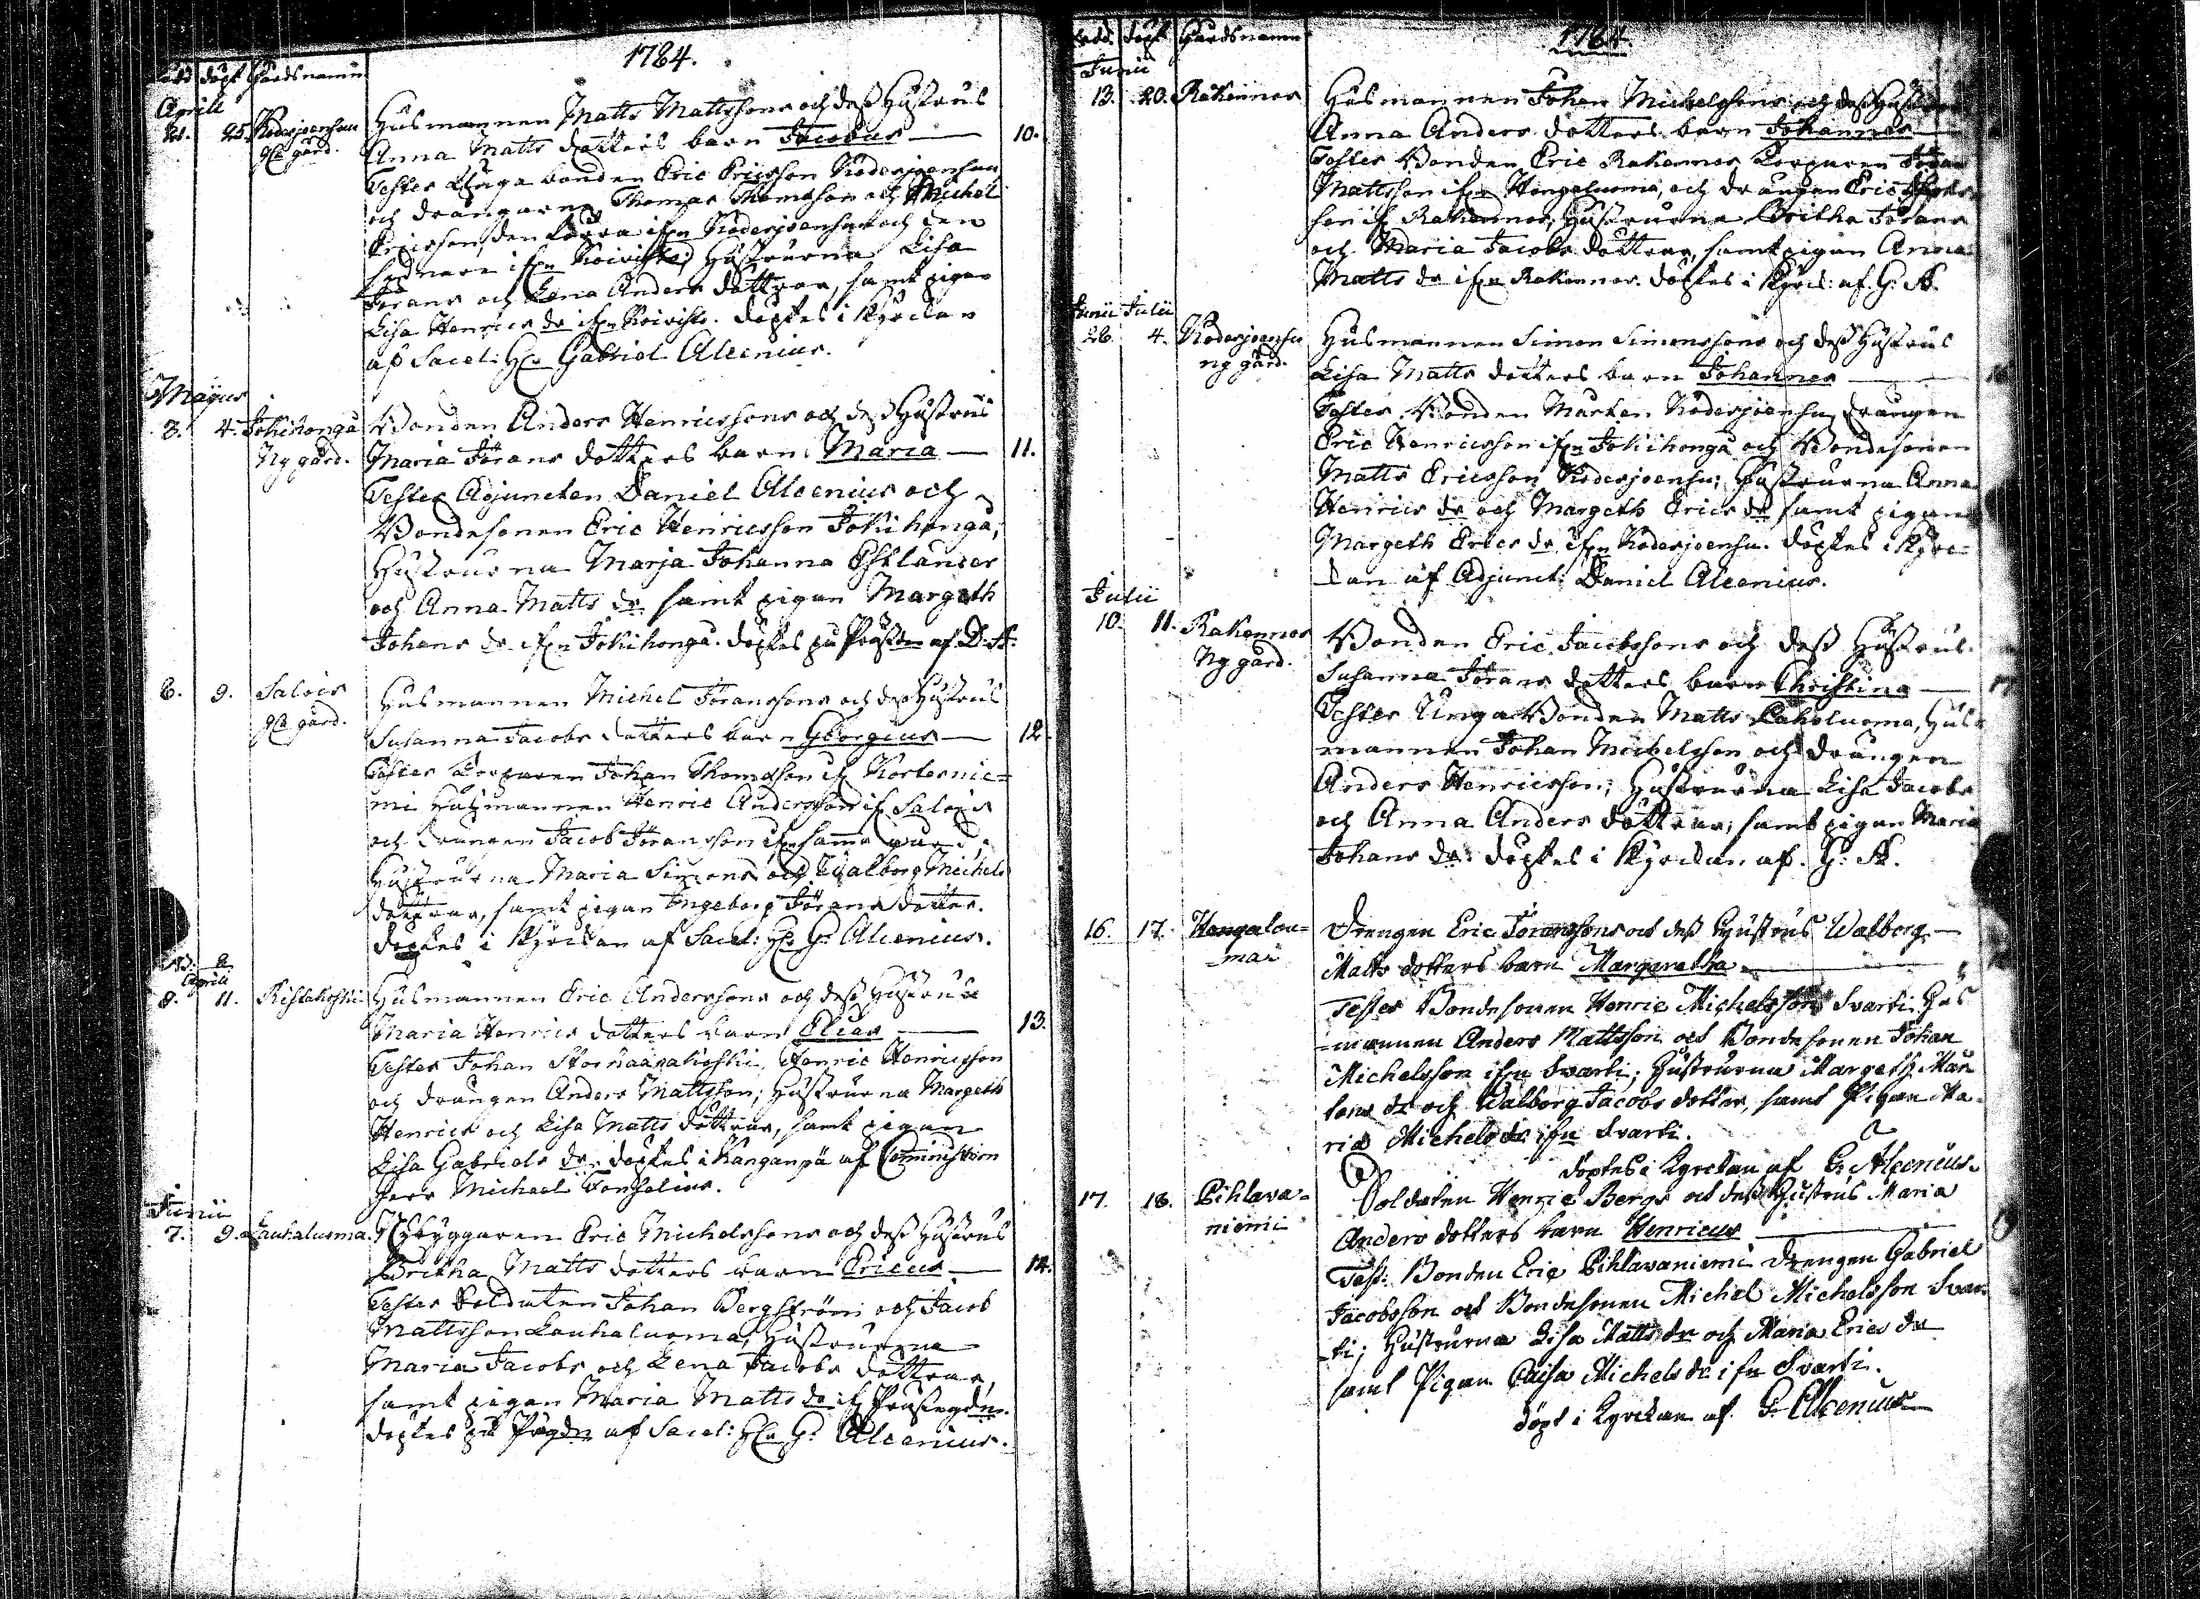 1784.
född döpt Gårdsnamn
Aprill
21. 25. Kodesjoensuu Husmannen Matts Mattssons och dess Hustrus
gla gård. Anna Matts dotters barn Jacobus — 10.
Testes Unga bonden Eric Ericsson Kodesjoensuu
och drängarna Thomas Thomasson och Michel
Ericsson, den förra ifrn Kodesjoensuu och den
sednare ifrn Koivisto; Hustrurna Lisa
Jörans och Lena Anders döttrar, samt pigan
Lisa Henrics dr ifrn Koivisto. döptes i Kyrckan
af Sacel: Hr Gabriel Alcenius.
Majus
3. 4. Jokihonga Bonden Anders Henricssons och dess Hustrus
Ny gård. Maria Jörans dotters barn Maria — 11.
Testes Adjuncten Daniel Alcenius och
Bondesonen Eric Henricsson Jokihonga;
Hustrurna Marja Johanna Estlander
och Anna Matts dr samt pigan Margeth
Johans dr ifrn Jokihonga. döptes på Prästgn af D. A.
6. 9. Salois Husmannen Michel Jöranssons och dess Hustrus
gla gård. Susanna Jacobs dotters barn Georgius — 12.
Testes Torparen Johan Thomasson ifr Korternie=
mi Husmannen Henric Andersson ifr Salois
och drängen Jacob Jöransson ifrn samma gård;
Hustrurna Maria Simons och Walborg Michels
döttrar, samt pigan Ingeborg Jörans dotter.
döptes i Kyrckan af Sacel: Hr G: Alcenius.
Aprill
9. 11. Ristakoski Husmannen Eric Anderssons och dess Hustrus
Maria Henrics dotters barn Elias — 13.
Testes Johan Henric Henricsson
och drängen Anders Mattsson; Hustrurna Margeth
Henrics och Lisa Matts döttrar, samt pigan
Lisa Gabriels dr. döptes i Kanganpä af Comministern
Herr Michael Forselius.
Junii
7. 9. Lauhaluoma. Nybyggaren Eric Michelssons och dess Hustrus
Britha Matts dotters barn Ericus — 14.
Testes Soldaten Johan Bergström och Jacob
Mattsson Lauhaluoma; Hustrurna
Maria Jacobs och Lena Jacobs döttrar,
samt pigan Maria Matts dr ifr Prästegdn.
döptes på Prgdn af Sacel: Hr G: Alcenius.
1784.
född. döpt Gårdsnamn
Junii
13. 20. Rakennes Husmannen Johan Michelssons och dess Hustrus
Anna Anders dotters barn Johannes
Testes Bonden Eric Rakennes Torparen Johan
Mattsson ifrn Hangaluoma, och drängen Eric
son ifr Rakennes; Hustrurna Britha Jörans
och Maria Jacobs döttrar, samt pigan Anna
Matts dr ifrn Rakennes. döptes i Kyrck: af G: A.
Junii Julii
26. 4. Kodesjoensu Husmannen Simon Simonssons och dess Hustrus
ny gård. Lisa Matts dotters barn Johannes —
Testes Bonden Marten Kodesjoensu, drängen
Eric Henricsson ifrn Jokihonga och Bondesonen
Matts Ericsson Kodesjoensu; Hustrurna Anna
Henrics dr och Margeth Erics dr samt pigan
Margeth Erics dr ifrn Kodesjoensu. döptes i Kyrc=
kan af Adjunct: Daniel Alcenius.
Julii
10. 11. Rakennes Bonden Eric Jacobssons och dess Hustrus
Ny gård. Susanna Jörans dotters barn Christina — 17
Testes Unga Bonden Matts Rahiluoma, Hus=
mannen Johan Michelsson och drängen
Anders Henricsson; Hustrurna Lisa Jacobs
och Anna Anders döttrar; samt pigan Maria
Johans dr. döptes i Kyrckan af. G: A.
16. 17. Hangalou= Drengen Eric Jöranssons och dess Hustrus Walborg
ma Matts dotters barn Margaretha
Testes Bondesonen Henric Michelsson Svarti, Hus
=mannen Anders Mattsson och Bondesonen Johan
Michelsson ifrn Svarti; Hustrurna Margeth Mar
tens dr och Walborg Jacobs dotter, samt Pigan Ma=
ria Michels dr ifrn Svarti.
döptes i Kyrckan af G. Alcenius.
17. 18. Pihlava= Soldaten Henric Bergs och dess Hustrus Maria
niemi Anders dotters barn Henricus
Test: Bonden Eric Pihlavaniemi Drengen Gabriel
Jacobsson och Bondesonen Michel Michelsson Svar
ti; Hustrurna Lisa Matts dr och Maria Erics dr
samt Pigan Caisa Michels dr ifrn Svarti.
döpt i Kyrckan af G. Alcenius